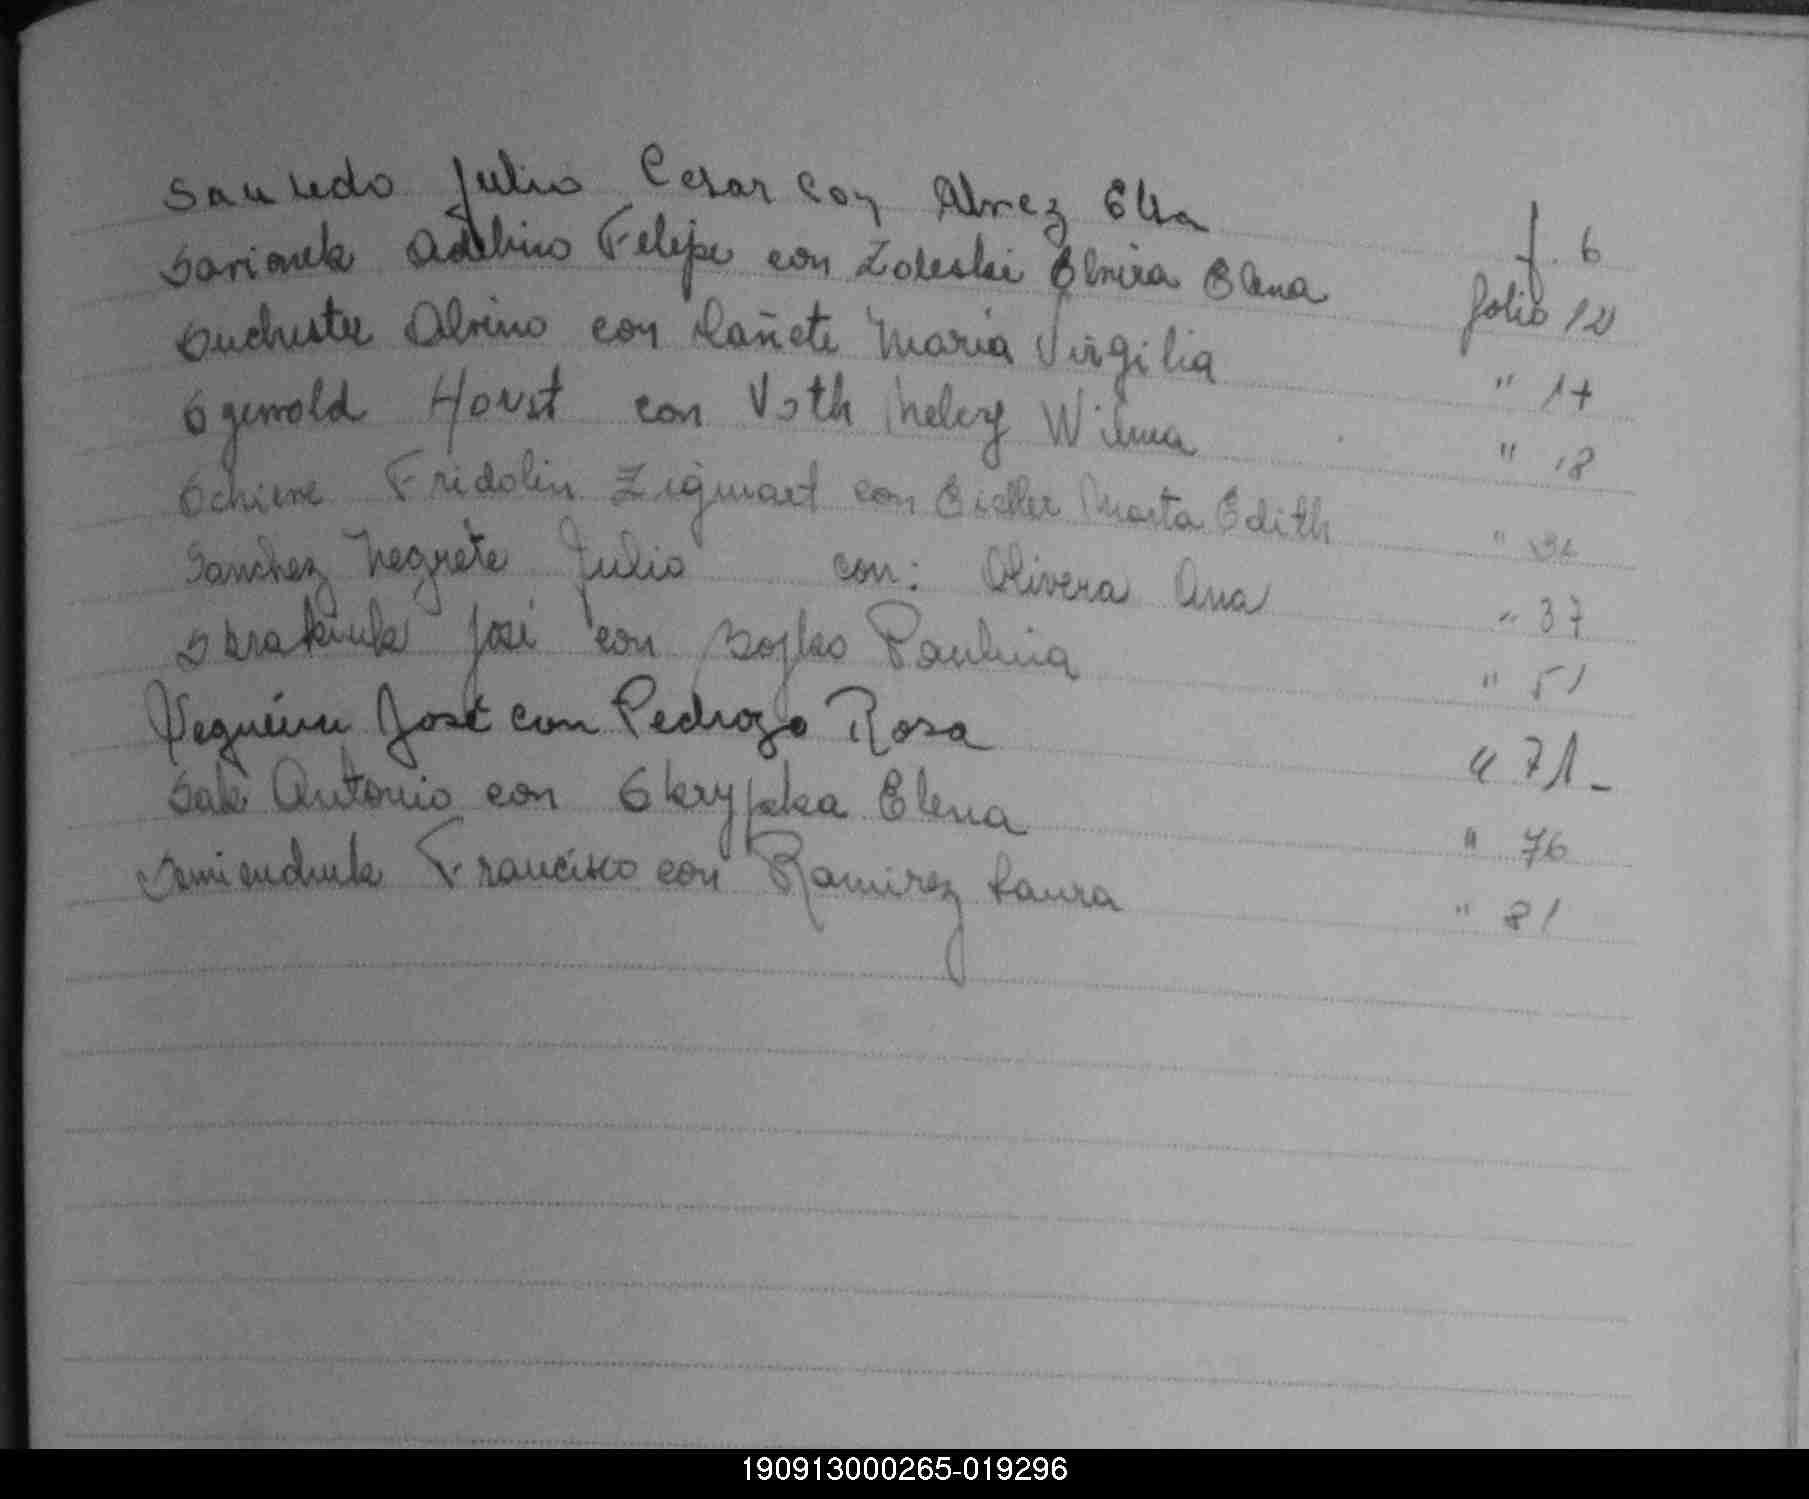 Saucedo Julio Cesar con Alvez Elsa f. 6
Sarionek Adelino Felipe con Zoleski Elvira Elena folio 12
Suchester Alvino con Cañete Maria Virgilia " 17
Sgewold Horst con Voth Nelcy Wilma " 18
Schiene Fridolin Zigmart con Eichler Marta Edith "
Sanchez Negrete Julio con: Olivera Ana " 37
José con Bojko Paulina " 51
José con Pedrozo Rosa " 71-
Antonio con Skrypka Elena " 76
Francisco con Ramirez Laura " 81
190913000265-019296